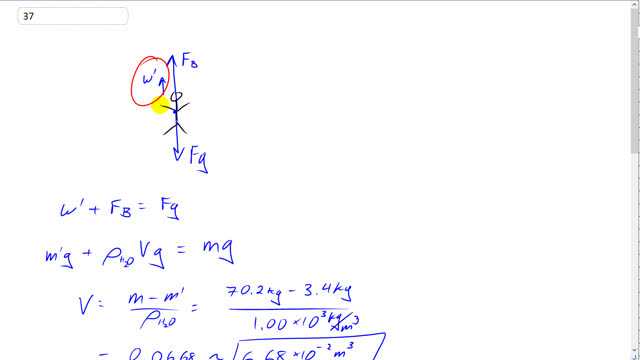 37
F_B
w'
Fg
w' + F_B = Fg
m'g + ρ_H₂O Vg = mg
V = m - m' / ρ_H₂O = 70.2 kg - 3.4 kg / 1.00 × 10³ kg/m³
= 0.0668 ≈ 6.68 × 10⁻² m³